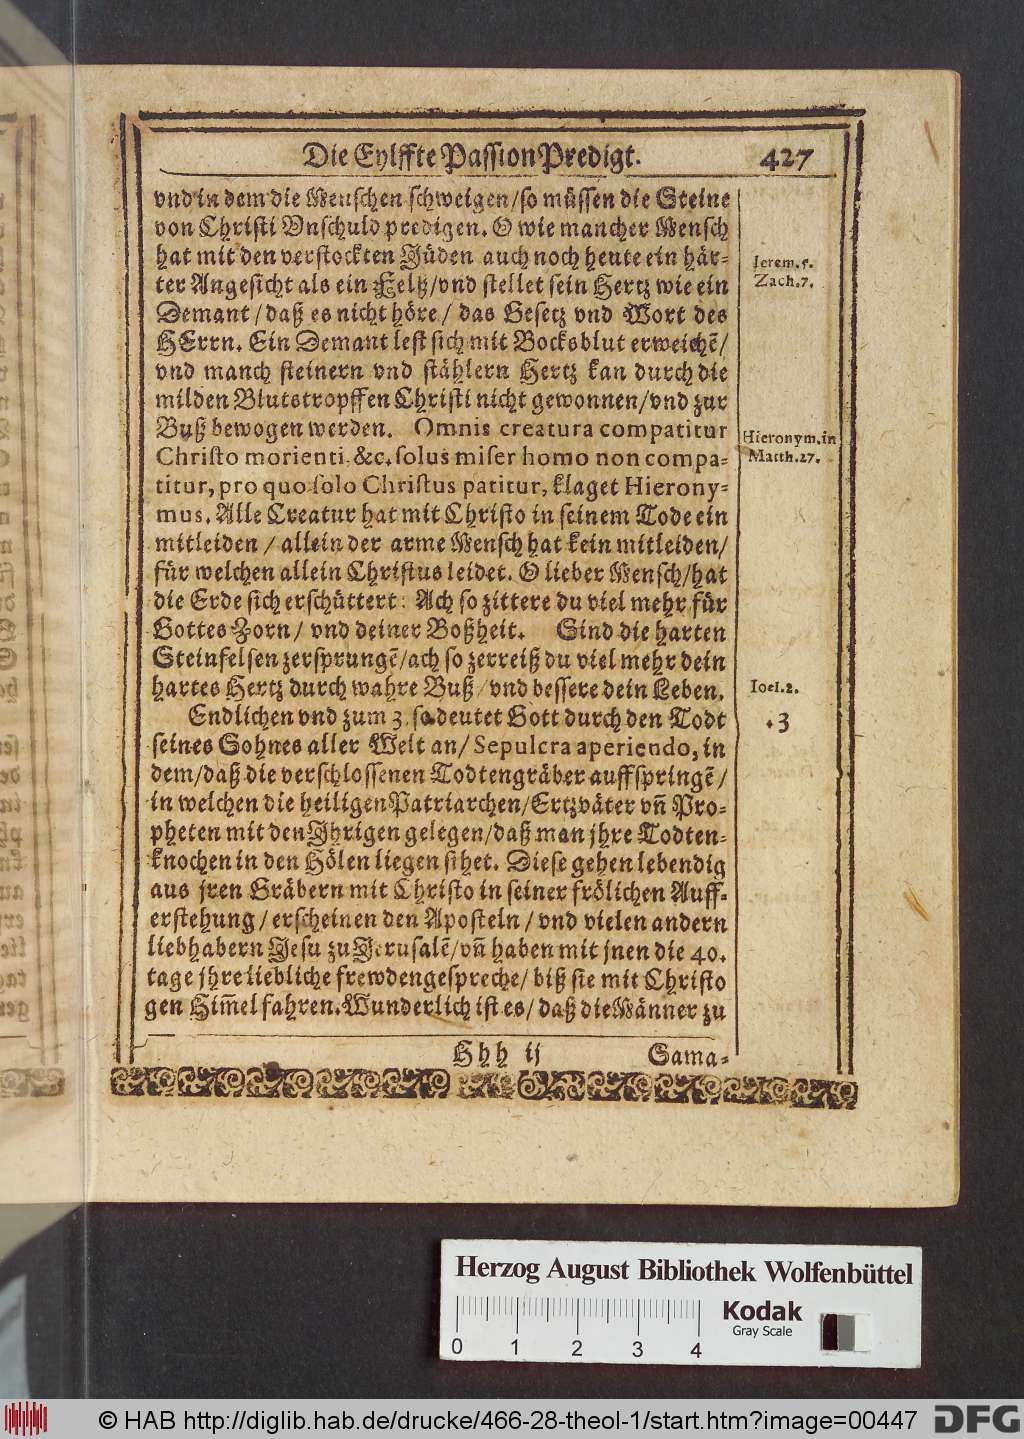 Die Eylffte Passion Predigt. 427
vnd in dem die Menschen schweigen/so müssen die Steine
von Christi Vnschuld predigen. O wie mancher Mensch
hat mit den verstockten Jüden auch noch heute ein här-
Jerem. 5.
ter Angesicht als ein Felß/vnd stellet sein Hertz wie ein
Zach. 7.
Demant/daß es nicht höre/ das Gesetz vnd Wort des
HErrn. Ein Demant lest sich mit Bocksblut erweichē/
vnd manch steinern vnd stählern Hertz kan durch die
milden Blutstropffen Christi nicht gewonnen/vnd zur
Buß bewogen werden. Omnis creatura compatitur
Hieronym. in
Christo morienti, &c. solus miser homo non compa-
Matth. 27.
titur, pro quo solo Christus patitur, klaget Hierony-
mus. Alle Creatur hat mit Christo in seinem Tode ein
mitleiden / allein der arme Mensch hat kein mitleiden/
für welchen allein Christus leidet. O lieber Mensch/hat
die Erde sich erschüttert: Ach so zittere du viel mehr für
Gottes Zorn/ vnd deiner Boßheit. Sind die harten
Steinfelsen zersprungē/ach so zerreiß du viel mehr dein
hartes Hertz durch wahre Buß/vnd bessere dein Leben.
Ioel. 2.
Endlichen vnd zum 3. so deutet Gott durch den Todt
. 3
seines Sohnes aller Welt an/ Sepulcra aperiendo, in
dem/daß die verschlossenen Todtengräber auffspringē/
in welchen die heiligen Patriarchen/Ertzväter vñ Pro-
pheten mit den Jhrigen gelegen/daß man jhre Todten-
knochen in den Hölen liegen sihet. Diese gehen lebendig
aus jren Gräbern mit Christo in seiner frölichen Auff-
erstehung/erscheinen den Aposteln/ vnd vielen andern
liebhabern Jesu zu Jerusalē/vñ haben mit jnen die 40.
tage jhre liebliche frewdengespreche/ biß sie mit Christo
gen Him̄el fahren. Wunderlich ist es/ daß die Männer zu
Hhh ij Sama-
Herzog August Bibliothek Wolfenbüttel
Kodak
Gray Scale
0 1 2 3 4
© HAB http://diglib.hab.de/drucke/466-28-theol-1/start.htm?image=00447 DFG